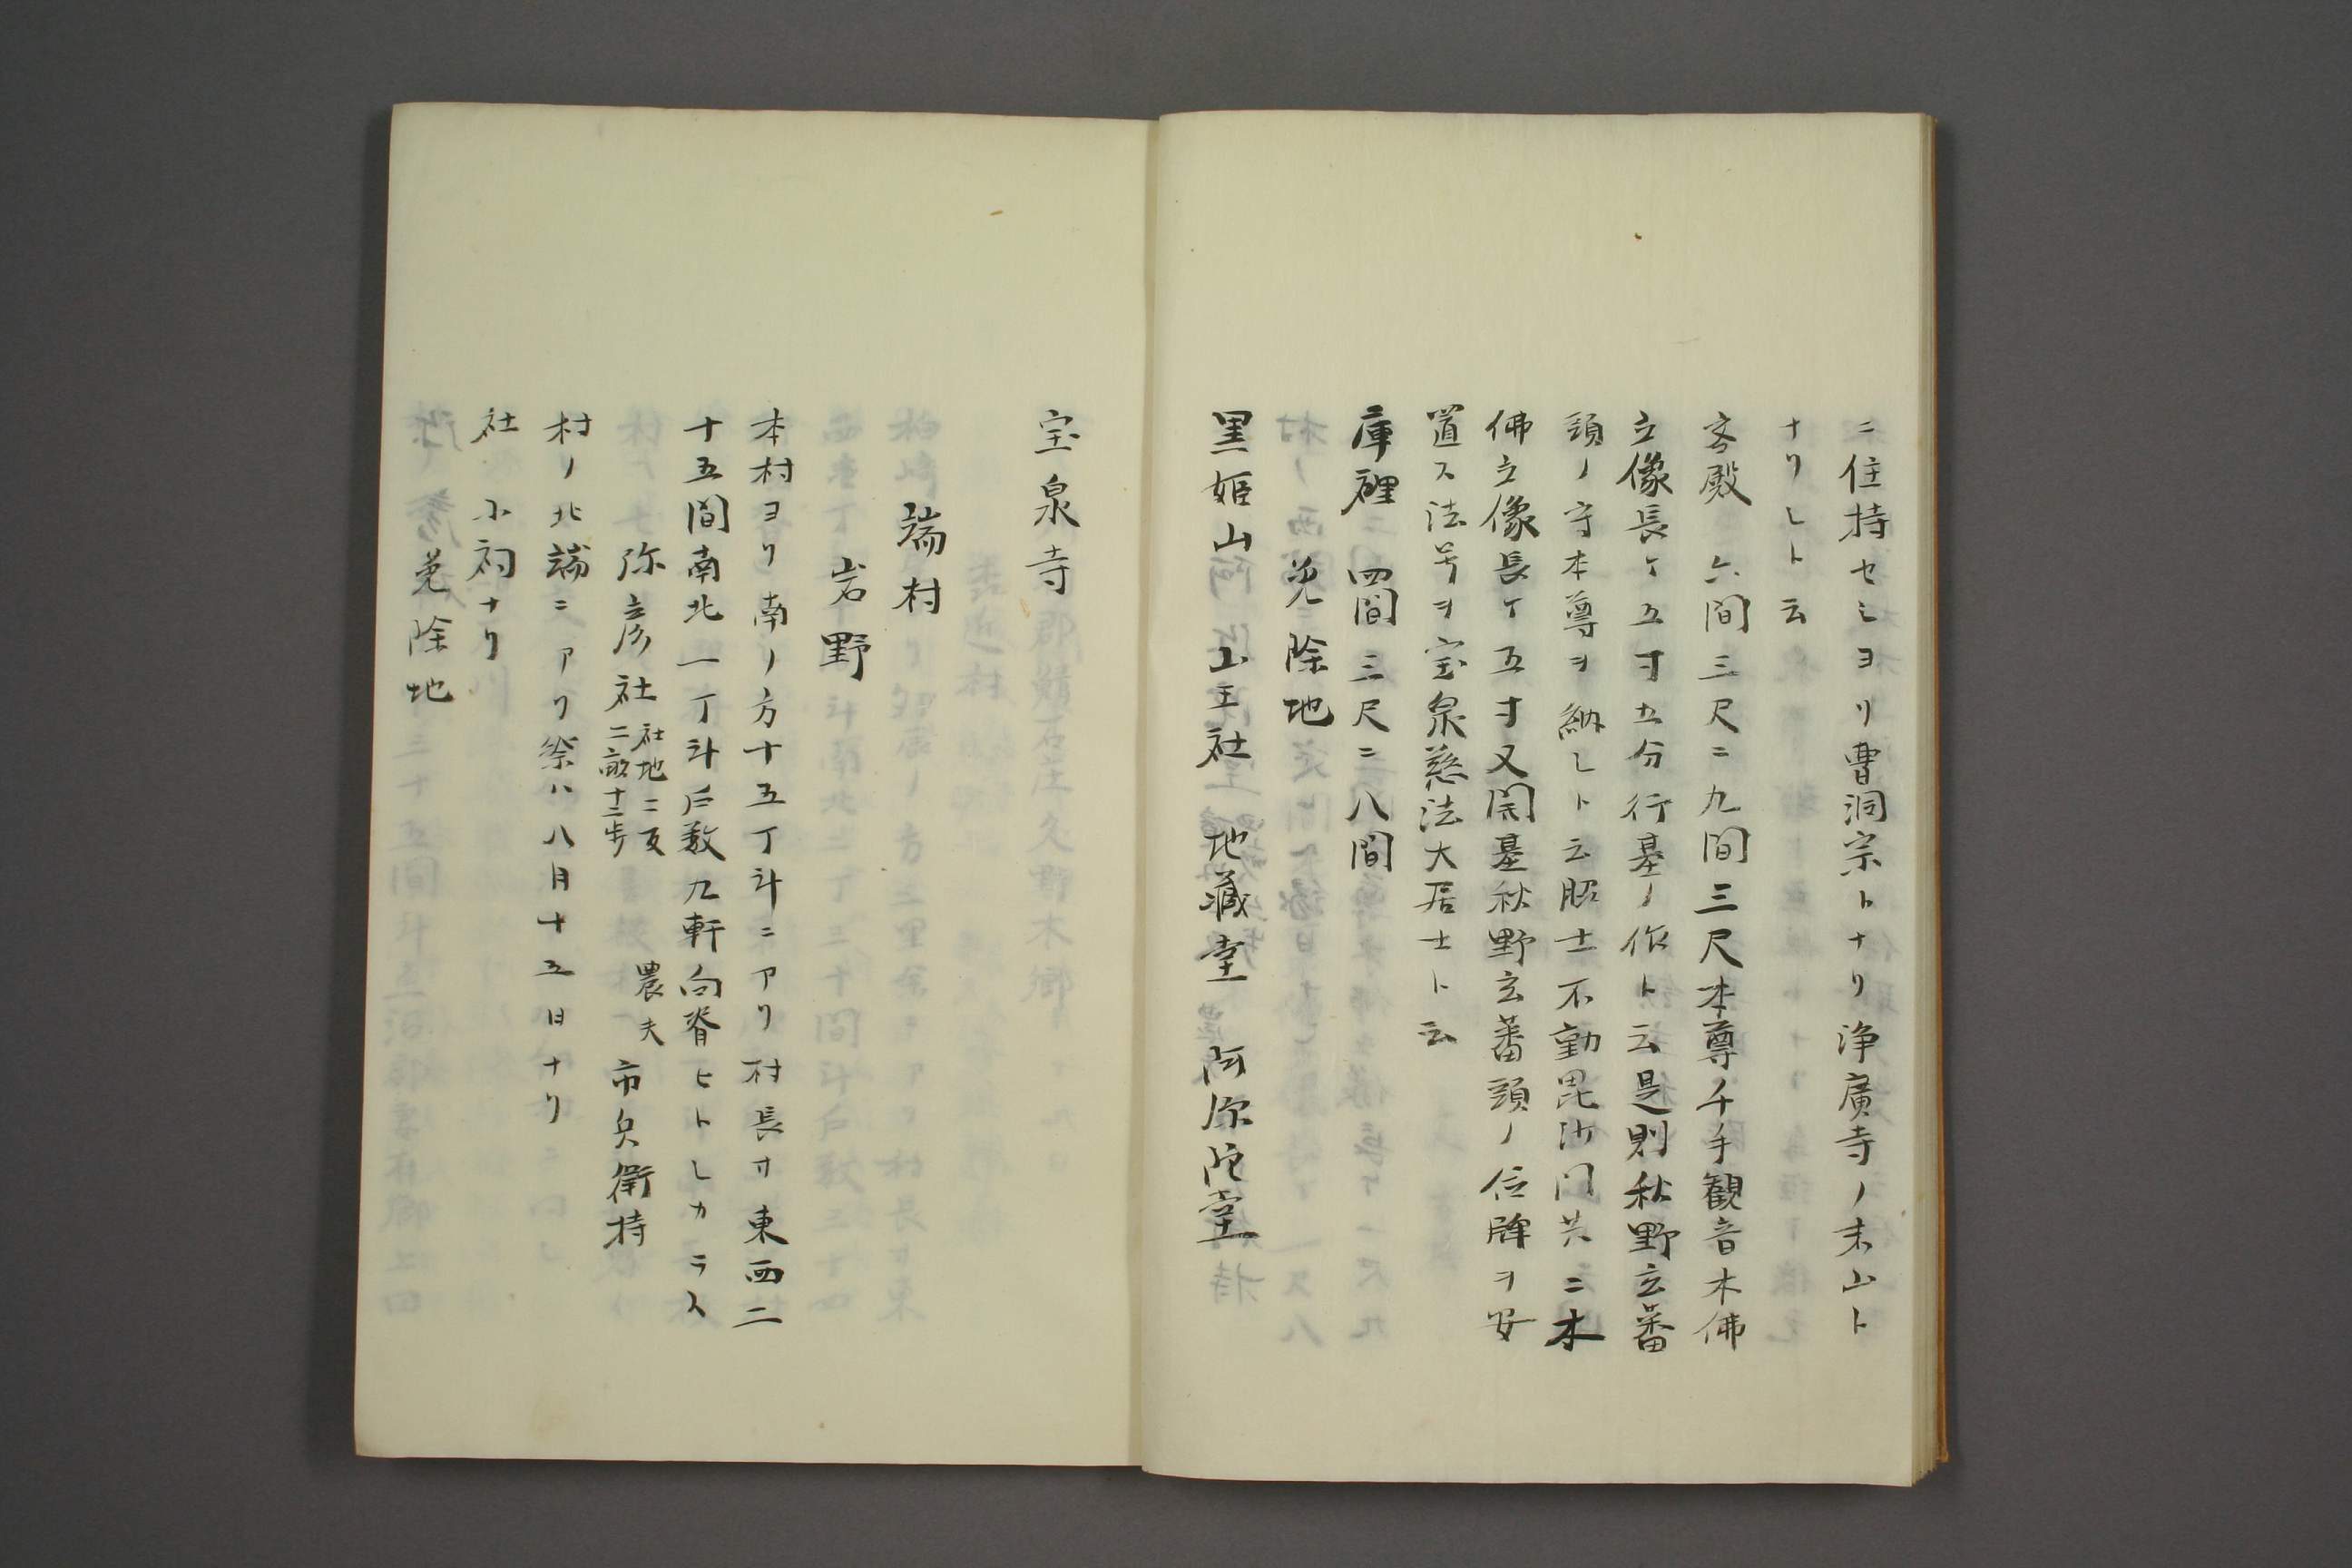 ニ住持セシヨリ曹洞宗トナリ浄廣寺ノ末山ト
ナリシト云
客殿　六間三尺ニ九間三尺本尊千手観音木佛
立像長ケ五寸五分行基ノ作ト云是則秋野玄蕃
頭ノ守本尊ヲ納シト云脇士不動毘沙門共ニ木
佛立像長ケ五寸又開基秋野玄蕃頭ノ位牌ヲ安
道ス法号ヲ宝泉慈法大居士ト云
庫裡　四間三尺ニ八間
免除地
黒姫山　山王社　地藏堂　阿弥陀堂
宝泉寺
端村
岩野
本村ヨリ南ノ方十五丁斗ニアリ村長サ東西二
十五間南北一丁斗戸数九軒向背ヒトシカラス
弥彦社　社地二反二畝十二歩　農夫　市兵衛持
村ノ北端ニアリ祭ハ八月十五日ナリ
社　小祠ナリ
免除地